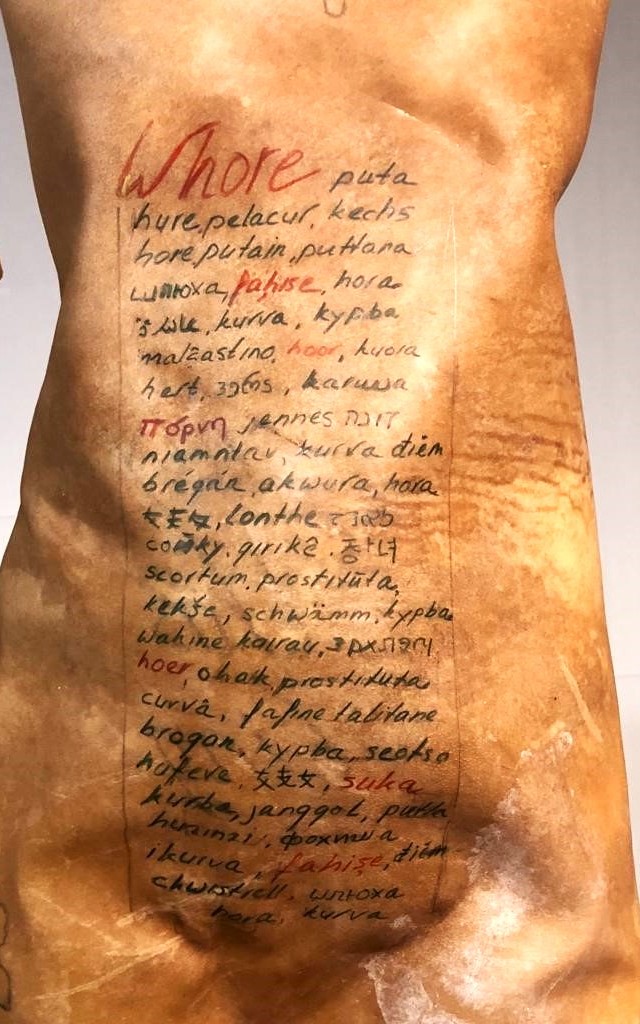 Whore puta
hure, pelacur, kechs
hore, putain, puttana
шлюха, fahişe, hora
kurva, курва
malzastino, hoor, huora
hert, karuwa
πόρνη jennes זונה
niamntav, kurva điếm
brégán, akwura, hora
lonthe
girikă. 창녀
scortum, prostitūta,
kekše, schwämm, курва
wahine kairau,
hoer, ohak prostituta
curvă, fafine talitane
brogan, курва, seotso
hufeve, suka
kurba, janggol, putta
huzinzi,
ikurva, fahişe, điếm
шлюха
hora, kurva